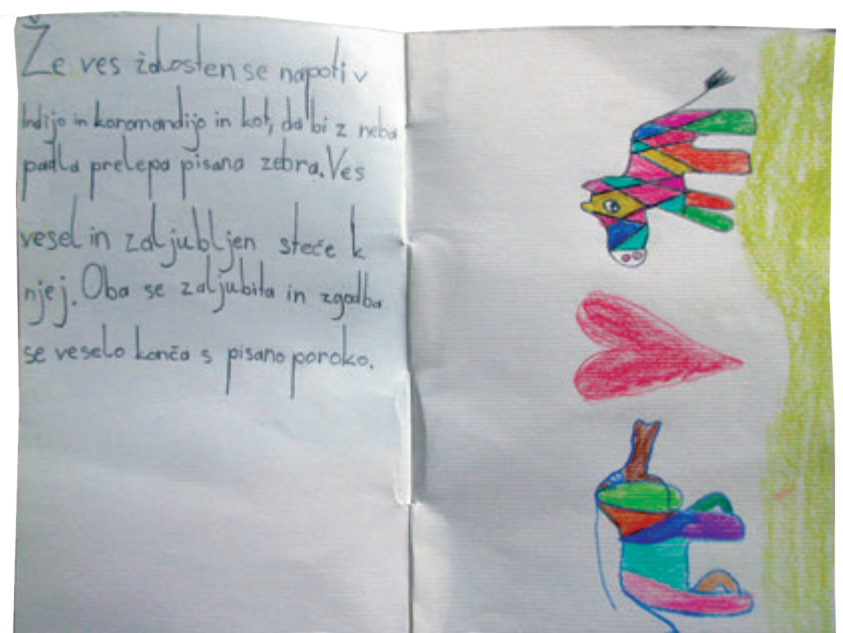 Že ves žalosten se napoti v
Indijo in koromandijo in kot, da bi z neba
padla prelepa pisana zebra. Ves
vesel in zaljubljen steče k
njej. Oba se zaljubita in zgodba
se veselo konča s pisano poroko.